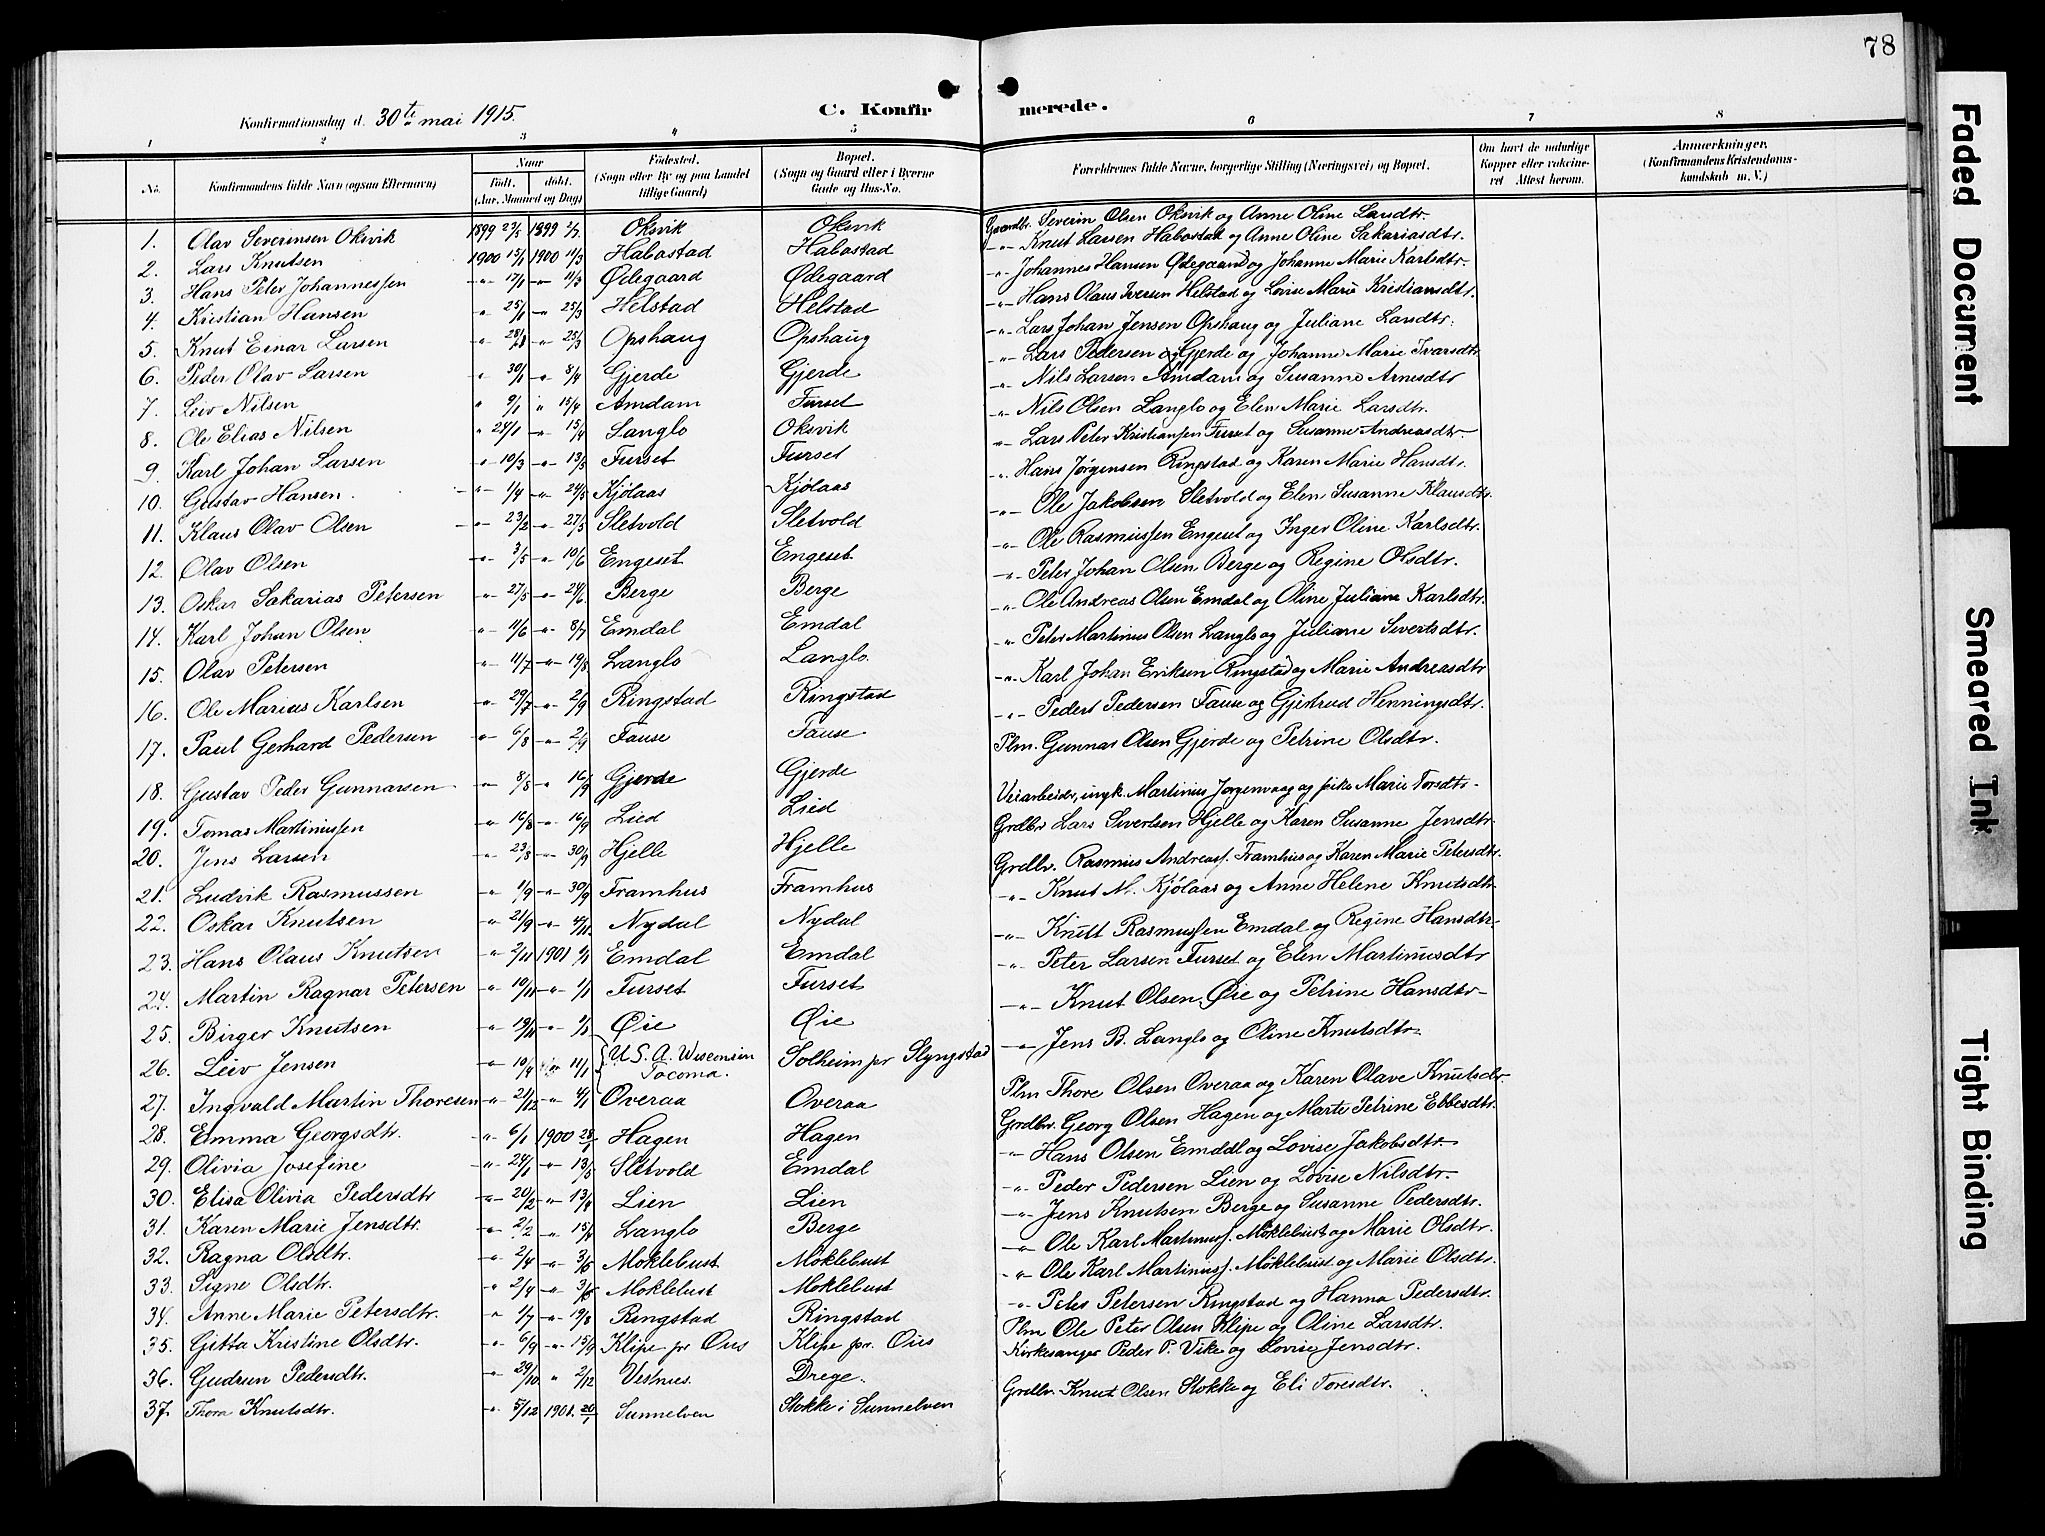 78
Konfirmationsdag d. 30te mai 1915.
C. Konfirmerede.
1 2 3 4 5 6 7 8
No. Konfirmandens fulde Navn (ogsaa Efternavn) Naar Født. døbt. (Aar, Maaned og Dag) Fødested. (Sogn eller By og paa Landet tillige Gaard) Bopæl. (Sogn og Gaard eller i Byerne Gade og Hus-No. Forældrenes fulde Navne, borgerlige Stilling (Næringsvei) og Bopæl. Om havt de naturlige Kopper eller vaccineret Attest herom. Anmærkninger. (Konfirmandens Kristendomskundskab m. V.)
1. Olav Severinsen Oksvik 1899 23/5 1899 2/7 Oksvik Oksvik Gaardbr. Severin Olsen Oksvik og Anne Oline Larsdtr.
2. Lars Knutsen 1900 15/1 1900 11/3 Habostad Habostad -"- Knut Larsen Habostad og Anne Oline Sakariasdtr.
3. Hans Peter Johannessen -"- 17/1 -"- 11/3 Ødegaard Ødegaard -"- Johannes Hansen Ødegaard og Johanne Marie Karlsdtr.
4. Kristian Hansen " 25/1 -"- 25/3 Helstad Helstad -"- Hans Olaus Iversen Helstad og Lovise Marie Kristiansdtr.
5. Knut Einar Larsen " -"- 25/3 Opshaug Opshaug -"- Lars Johan Jensen Opshaug og Juliane Larsdtr.
6. Peder Olav Larsen " 30/1 " 8/4 Gjerde Gjerde -"- Lars Pedersen Gjerde og Johanne Marie Ivarsdtr
7. Leiv Nilsen " 9/1 " 15/4 Amdam Furset -"- Nils Larsen Amdam og Susanne Arnesdtr
8. Ole Elias Nilsen " 24/1 -"- 15/4 Langlo Oksvik -"- Nils Olsen Langlo og Elen Marie Larsdtr.
9. Karl Johan Larsen -"- 10/3 -"- 13/5 Furset Furset -"- Lars Peter Kristiansen Furset og Susanne Andreasdtr.
10. Gustav Hansen. -"- 1/4 -"- 24/5 Kjølaas Kjølaas -"- Hans Jørgensen Ringstad og Karen Marie Hansdtr.
11. Klaus Olav Olsen -"- 23/2 -"- 27/5 Sletvold Sletvold -"- Ole Jakobsen Sletvold og Elen Susanne Klausdtr.
12. Olav Olsen -"- 3/5 -"- 10/6 Engeset Engeset -"- Ole Rasmussen Engeset og Inger Oline Karlsdtr.
13. Oskar Sakarias Petersen -"- 27/5 -"- 24/6 Berge Berge -"- Peter Johan Olsen Berge og Regine Olsdtr.
14. Karl Johan Olsen -"- 11/6 -"- 8/7 Emdal Emdal -"- Ole Andreas Olsen Emdal og Oline Juliane Karlsdtr.
15. Olav Petersen -"- 11/7 -"- 19/8 Langlo Langlo. -"- Peter Martinus Olsen Langlo og Juliane Sivertsdtr.
16. Ole Marius Karlsen -"- 29/7 -"- 2/9 Ringstad Ringstad -"- Karl Johan Eriksen Ringstad og Marie Andreasdtr
17. Paul Gerhard Pedersen -"- 6/8 -"- 2/9 Fause Fause -"- Peder Pedersen Fause og Gjertrud Henningsdtr.
18. Gustav Peder Gunnarsen -"- 8/8 " 16/9 Gjerde Gjerde Plm. Gunnar Olsen Gjerde og Petrine Olsdtr.
19. Tomas Martinussen -"- 16/8 -"- 16/9 Lied Lied Veiarbeider, ungk. Martinius Jørgenvaag og pike Marie Torsdtr.
20. Jens Larsen -"- 23/8 -"- 30/9 Hjelle Hjelle Grdbr. Lars Sivertsen Hjelle og Karen Susanne Jensdtr.
21. Ludvik Rasmussen -"- 1/9 -"- 30/9 Framhus Framhus Grdbr. Rasmus Andreass. Framhus og Karen Marie Petersdtr.
22. Oskar Knutsen -"- 21/9 -"- 4/11 Nydal Nydal -"- Knut M. Kjølaas og Anne Helene Knutsdtr.
23. Hans Olaus Knutsen " 2/11 1901 1/1 Emdal Emdal -"- Knutt Rasmussen Emdal og Regine Hansdtr.
24. Martin Ragnar Petersen -"- 10/11 -"- 1/1 Furset Furset -"- Peter Larsen Furset og Elen Martinusdtr
25. Birger Knutsen -"- 19/11 -"- 1/1 Øie Øie -"- Knut Olsen Øie og Petrine Hansdtr.
26. Leiv Jensen -"- 10/4 -"- 11/1 U.S.A. Wisconsin Tacoma. Solheim pr Slyngstad -"- Jens B. Langlo og Oline Knutsdtr.
27. Ingvald Martin Thoresen -"- 21/12 -"- 4/1 Overaa Overaa Plm Thore Olsen Overaa og Karen Olave Knutsdtr.
28. Emma Georgsdtr. " 6/1 1900 28/1 Hagen Hagen Grdbr. Georg Olsen Hagen og Marte Petrine Ebbesdtr.
29. Olivia Josefine " 24/1 -"- 13/5 Sletvold Emdal -"- Hans Olsen Emdal og Lovise Jakobsdtr.
30. Elisa Olivia Pedersdtr -"- 20/2 -"- 13/4 Lien Lien -"- Peder Pedersen Lien og Lovise Nilsdtr.
31. Karen Marie Jensdtr. -"- 2/2 " 15/4 Langlo Berge -"- Jens Knutsen Berge og Susanne Pedersdtr.
32. Ragna Olsdtr. -"- 2/4 -"- 3/6 Moklebust Moklebust -"- Ole Karl Martinuss. Moklebust og Marie Olsdtr.
33. Signe Olsdtr. " 2/4 -"- 3/6 Moklebust Moklebust -"- Ole Karl Martinuss. Moklebust og Marie Olsdtr.
34. Anne Marie Petersdtr. " 1/7 -"- 19/8 Ringstad Ringstad -"- Peter Petersen Ringstad og Hanna Pedersdtr.
35. Gitta Kristine Olsdtr. -"- 6/9 -"- 15/9 Klipe pr Øies Klipe pr. Øies Plm Ole Peter Olsen Klipe og Oline Larsdtr.
36. Gudrun Pedersdtr. -"- 29/10 " 2/12 Vestnes. Drege. Kirkesanger Peder P. Vike og Lovise Jensdtr.
37. Thora Knutsdtr. -"- 5/12 1901. 20/1 Sunnelven Stokke i Sunnelven Grdbr. Knut Olsen Stokke og Eli Toresdtr.
Faded Document
Smeared Ink
Tight Binding